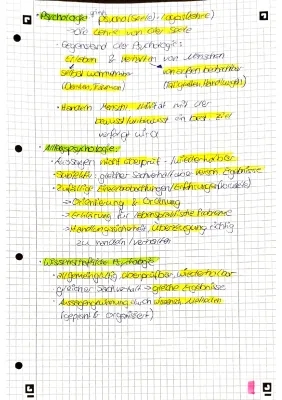 · Psychologie: griech. psycho (Seele), logos (Lehre)
→ Die Lehre von der Seele
· Gegenstand der Psychologie:
Erleben & Verhalten von Menschen
selbst wahrnehmbar von außen beobachtbar
(Denken, Träumen)
· Handeln: Mensch mit der
bewusst/unbewusst ein best. Ziel
verfolgt wird
· Alltagspsychologie:
· Aussagen nicht überprüf-/wiederholbar
· Subjektiv: gleicher Sachverhalt versch. Ergebnisse
· Zufällige Einzelbeobachtungen/Erfahrungen
→ Orientierung & Ordnung
→ Erklärung für lebenspraktische Probleme
→ Handlungssicherheit, Überzeugung richtig
zu handeln/verhalten
· Wissenschaftliche Psychologie
· allgemeingültig, überprüfbar, wiederholbar
gleicher Sachverhalt → gleiche Ergebnisse
· Aussagengewinnung durch wissensch. Methoden
(geplant & organisiert)